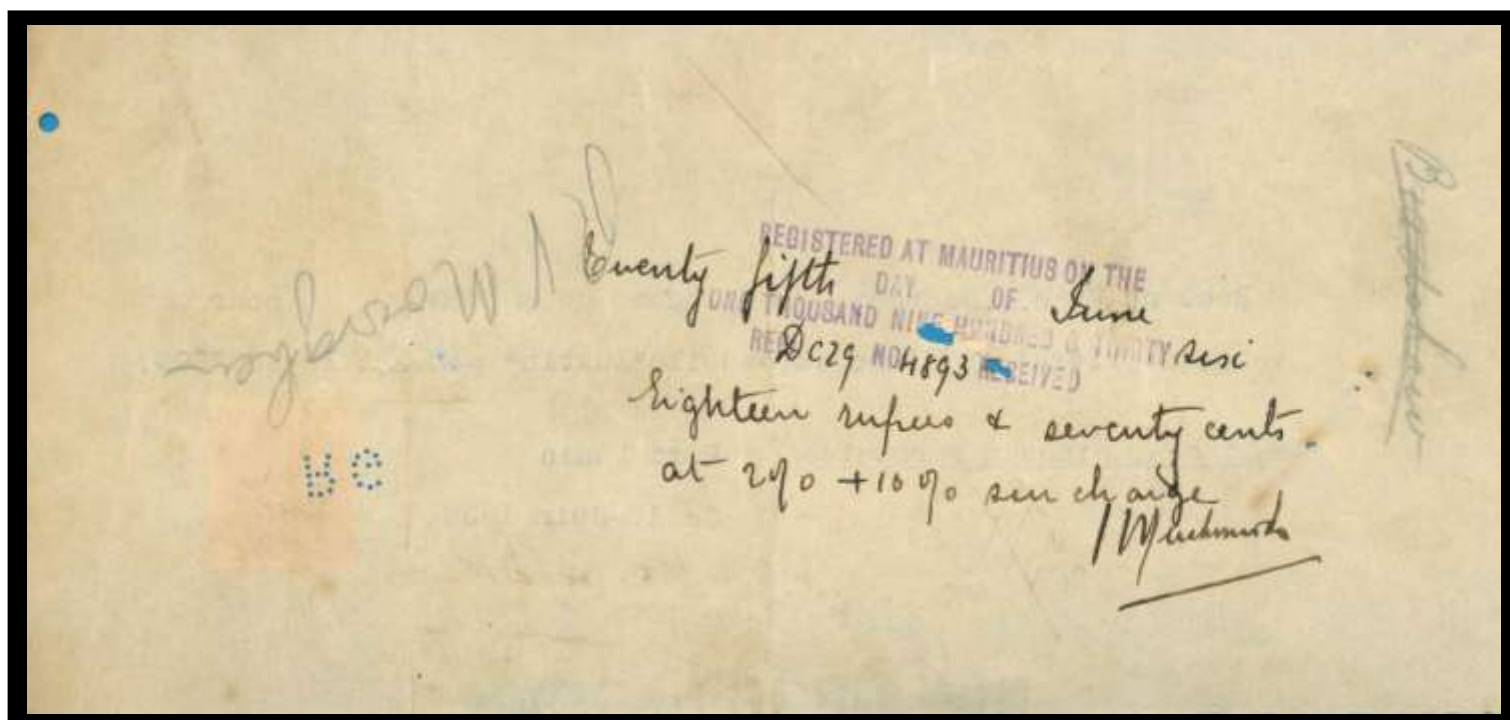 REGISTERED AT MAURITIUS ON THE
Twenty fifth DAY OF June
ONE THOUSAND NINE HUNDRED & THIRTY sisc
REG NO RECEIVED
DC29 4893
Eighteen rupees & seventy cents.
at 2% + 10% sur charge